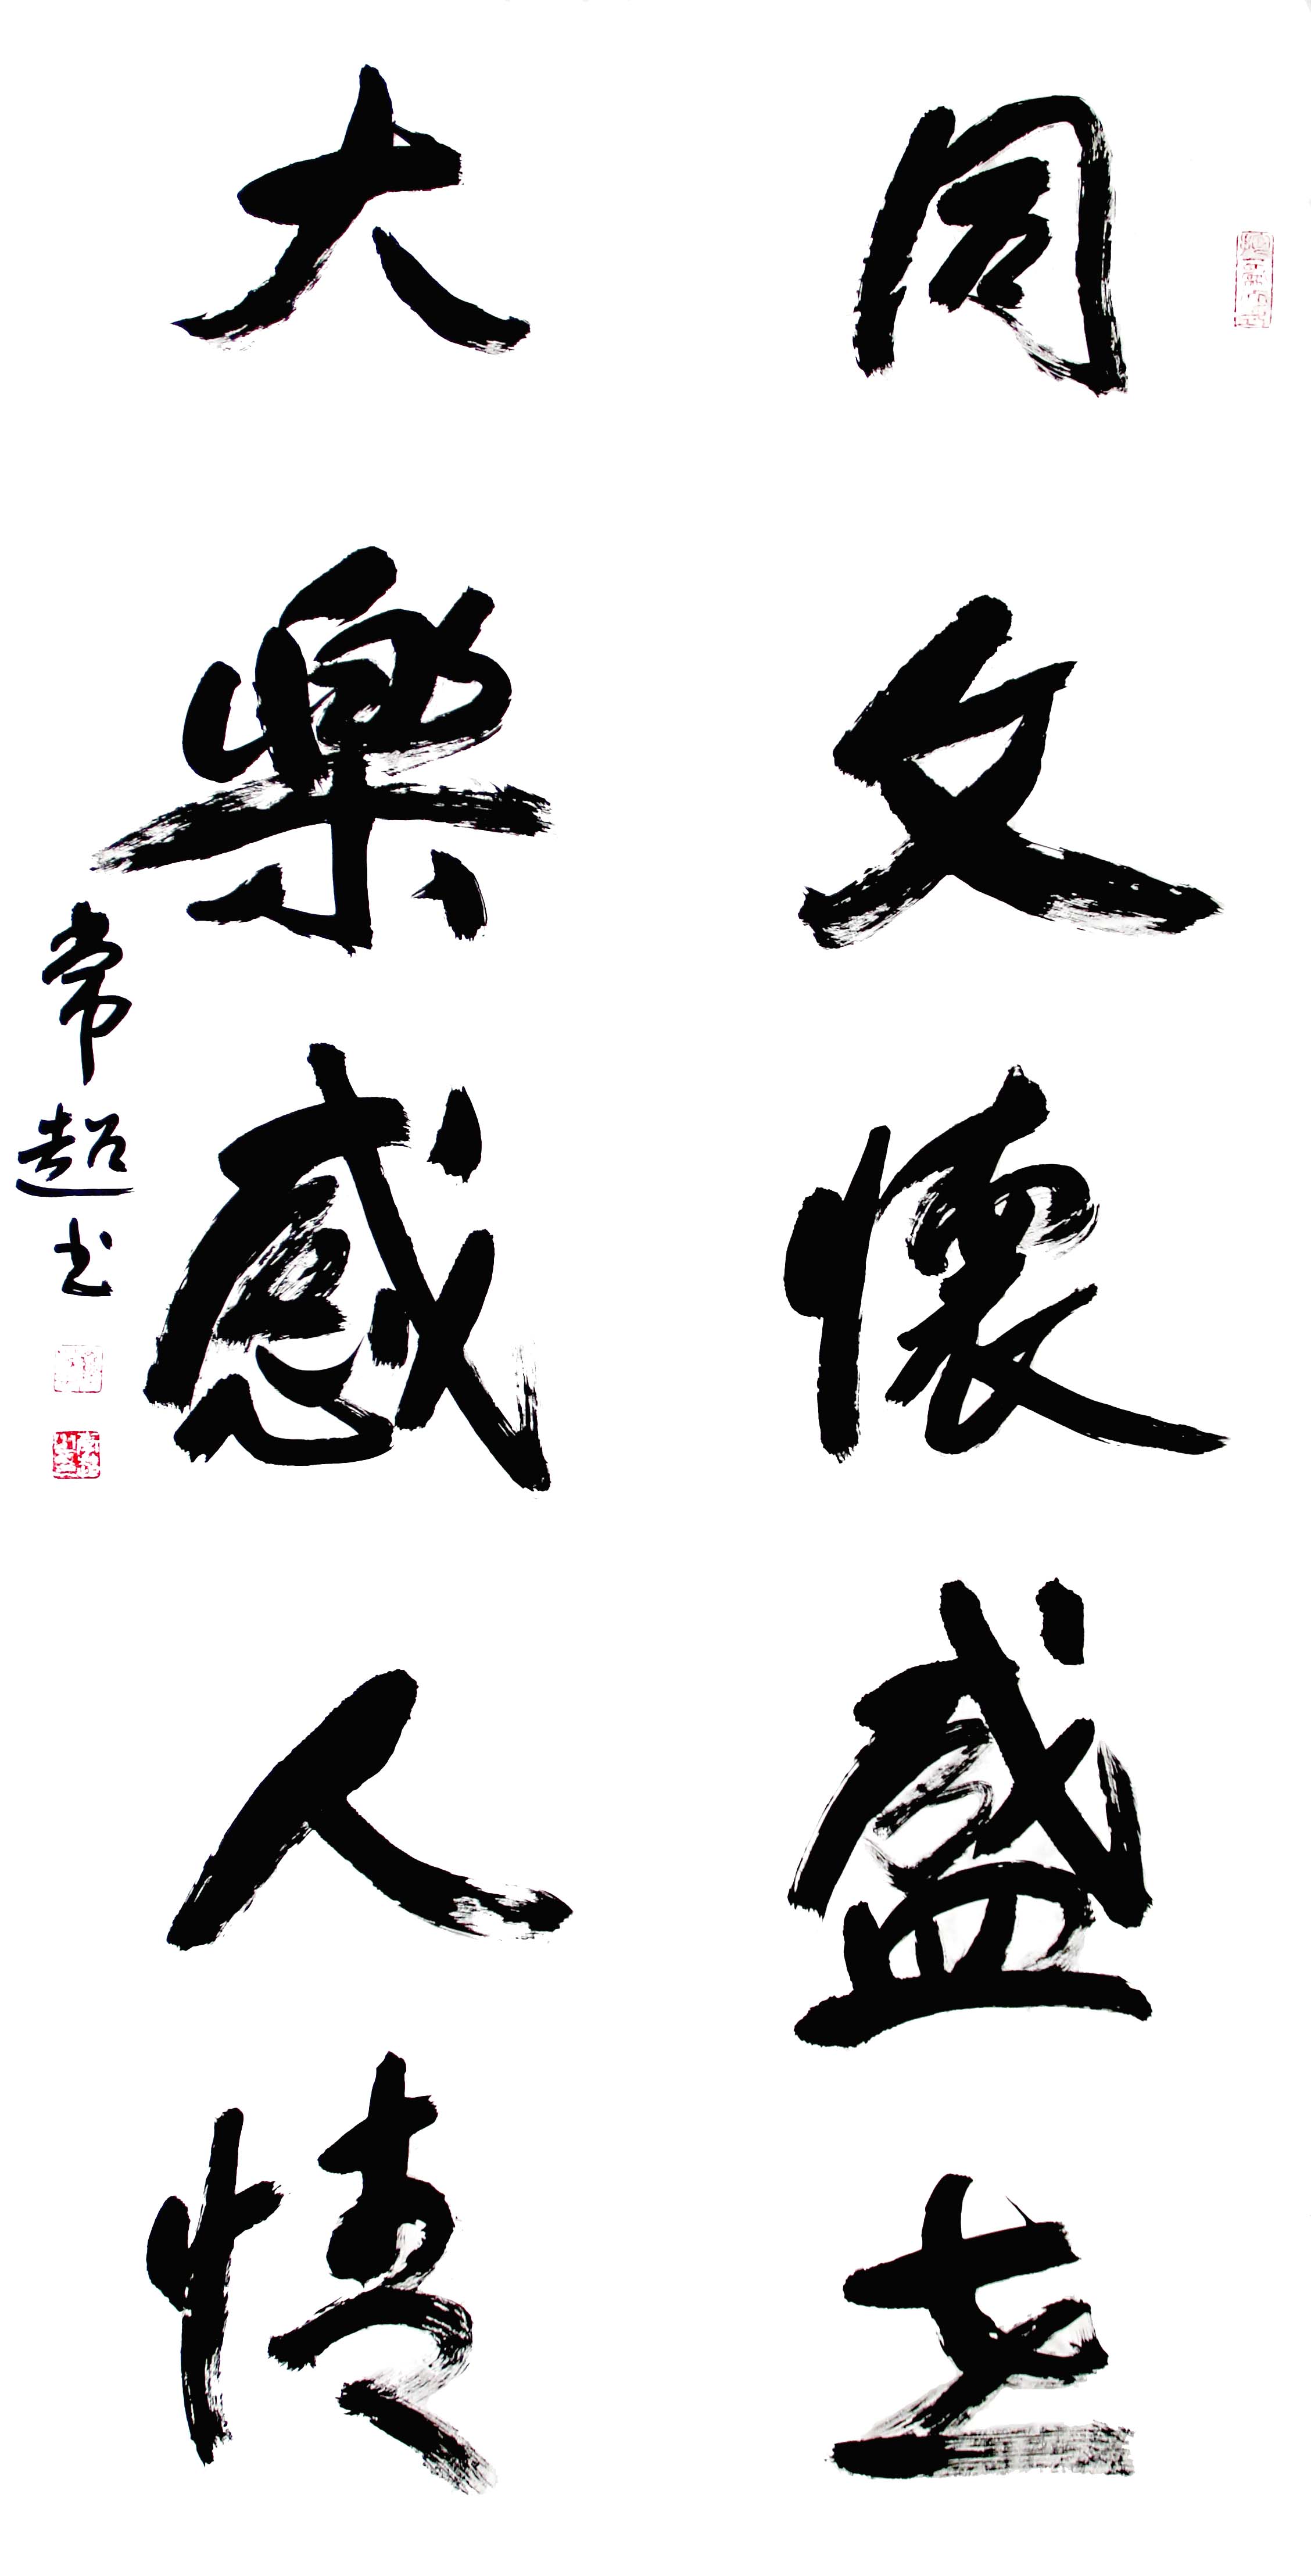 同文懷盛世
大樂感人情
常超书